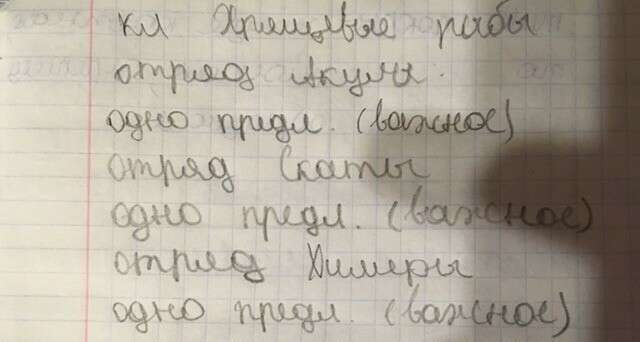 кл Хрящевые рыбы
отряд Акулы.
одно предл. (важное)
отряд Скаты
одно предл. (важное)
отряд Химеры
одно предл. (важное)